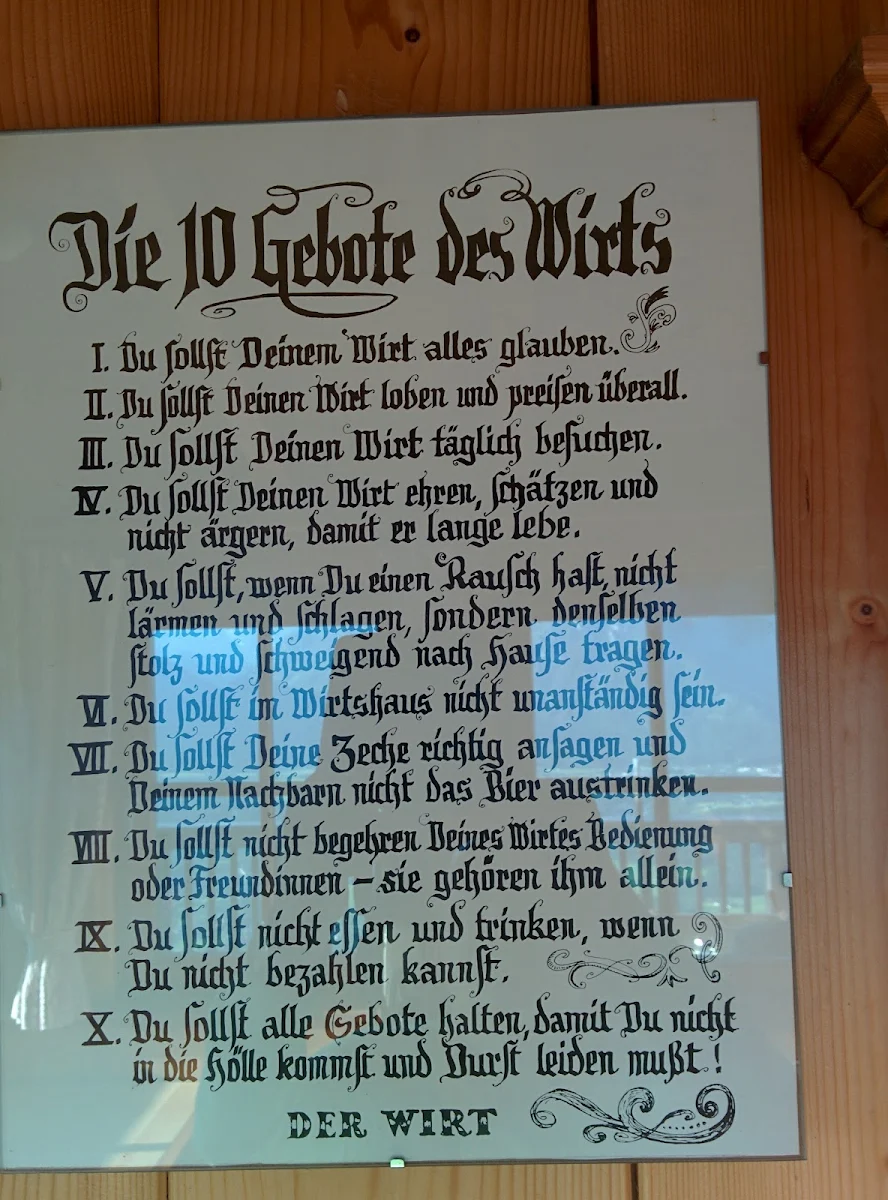 Die 10 Gebote des Wirts
I. Du sollst Deinem Wirt alles glauben.
II. Du sollst Deinen Wirt loben und preisen überall.
III. Du sollst Deinen Wirt täglich besuchen.
IV. Du sollst Deinen Wirt ehren, schätzen und
nicht ärgern, damit er lange lebe.
V. Du sollst, wenn Du einen Rausch hast, nicht
lärmen und schlagen, sondern denselben
stolz und schweigend nach Hause tragen.
VI. Du sollst im Wirtshaus nicht unanständig sein.
VII. Du sollst Deine Zeche richtig ansagen und
Deinem Nachbarn nicht das Bier austrinken.
VIII. Du sollst nicht begehren Deines Wirtes Bedienung
oder Freundinnen – sie gehören ihm allein.
IX. Du sollst nicht essen und trinken, wenn
Du nicht bezahlen kannst.
X. Du sollst alle Gebote halten, damit Du nicht
in die Hölle kommst und Durst leiden mußt!
DER WIRT